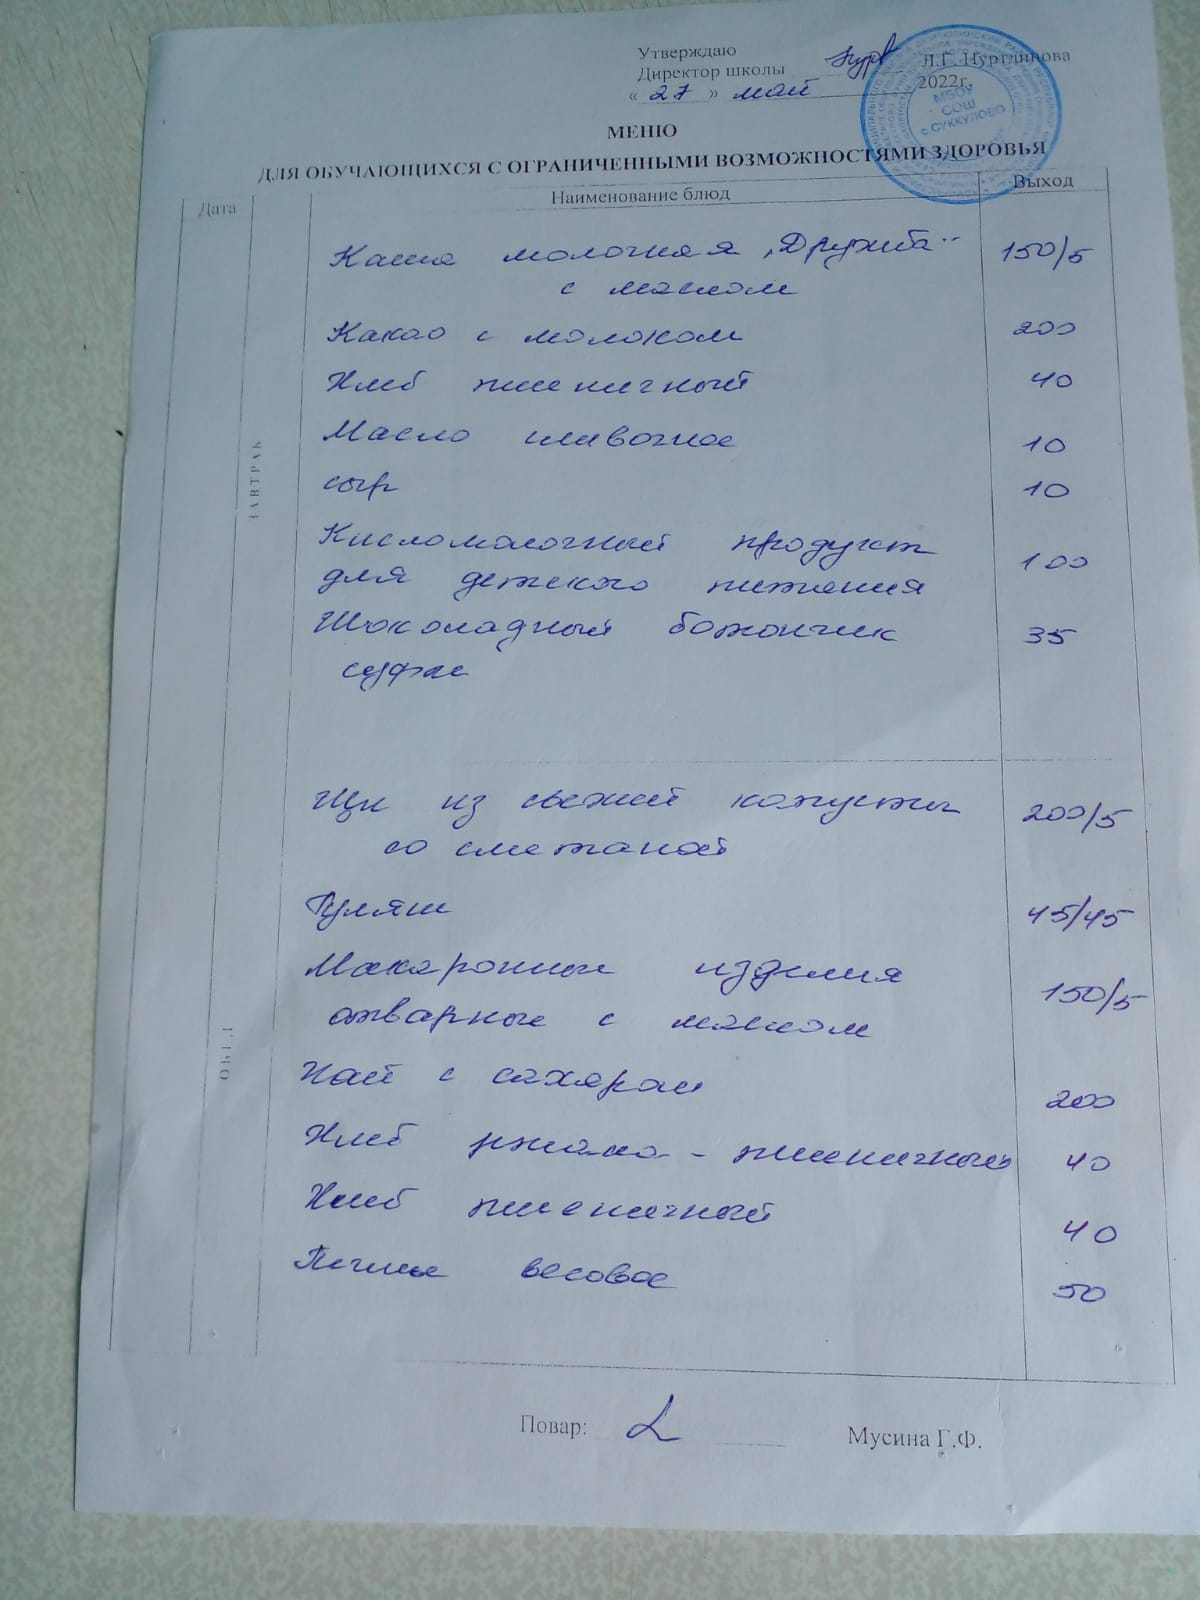 Утверждаю
Директор школы Л.Г. Нуртдинова
« 27 » май 2022г.
МБОУ
СОШ
с СУККУЛОВО
МЕНЮ
ДЛЯ ОБУЧАЮЩИХСЯ С ОГРАНИЧЕННЫМИ ВОЗМОЖНОСТЯМИ ЗДОРОВЬЯ
Дата Наименование блюд Выход
ЗАВТРАК
Каша молочная "Дружба" 150/5
с маслом
Какао с молоком 200
Хлеб пшеничный 40
Масло сливочное 10
сыр 10
Кисломолочный продукт 100
для детского питания
Шоколадный батончик 35
суфле
ОБЕД
Щи из свежей капусты 200/5
со сметаной
Гуляш 45/45
Макаронные изделия 150/5
отварные с маслом
Чай с сахаром 200
Хлеб ржано-пшеничный 40
Хлеб пшеничный 40
Печенье весовое 50
Повар: Мусина Г.Ф.